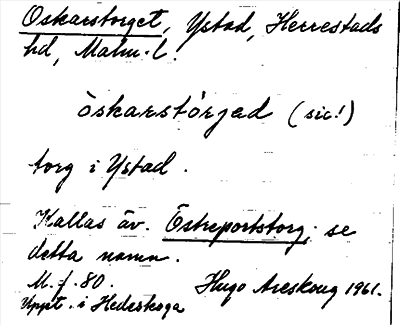 Oskarstorget, Ystad, Herrestads
hd, Malm. l.
òskarstórjed (sic!)
torg i Ystad.
Kallas äv. Östreportstorg; se
detta namn.
M. f. 80. Hugo Areskoug 1961.
Uppt. i Hedeskoga